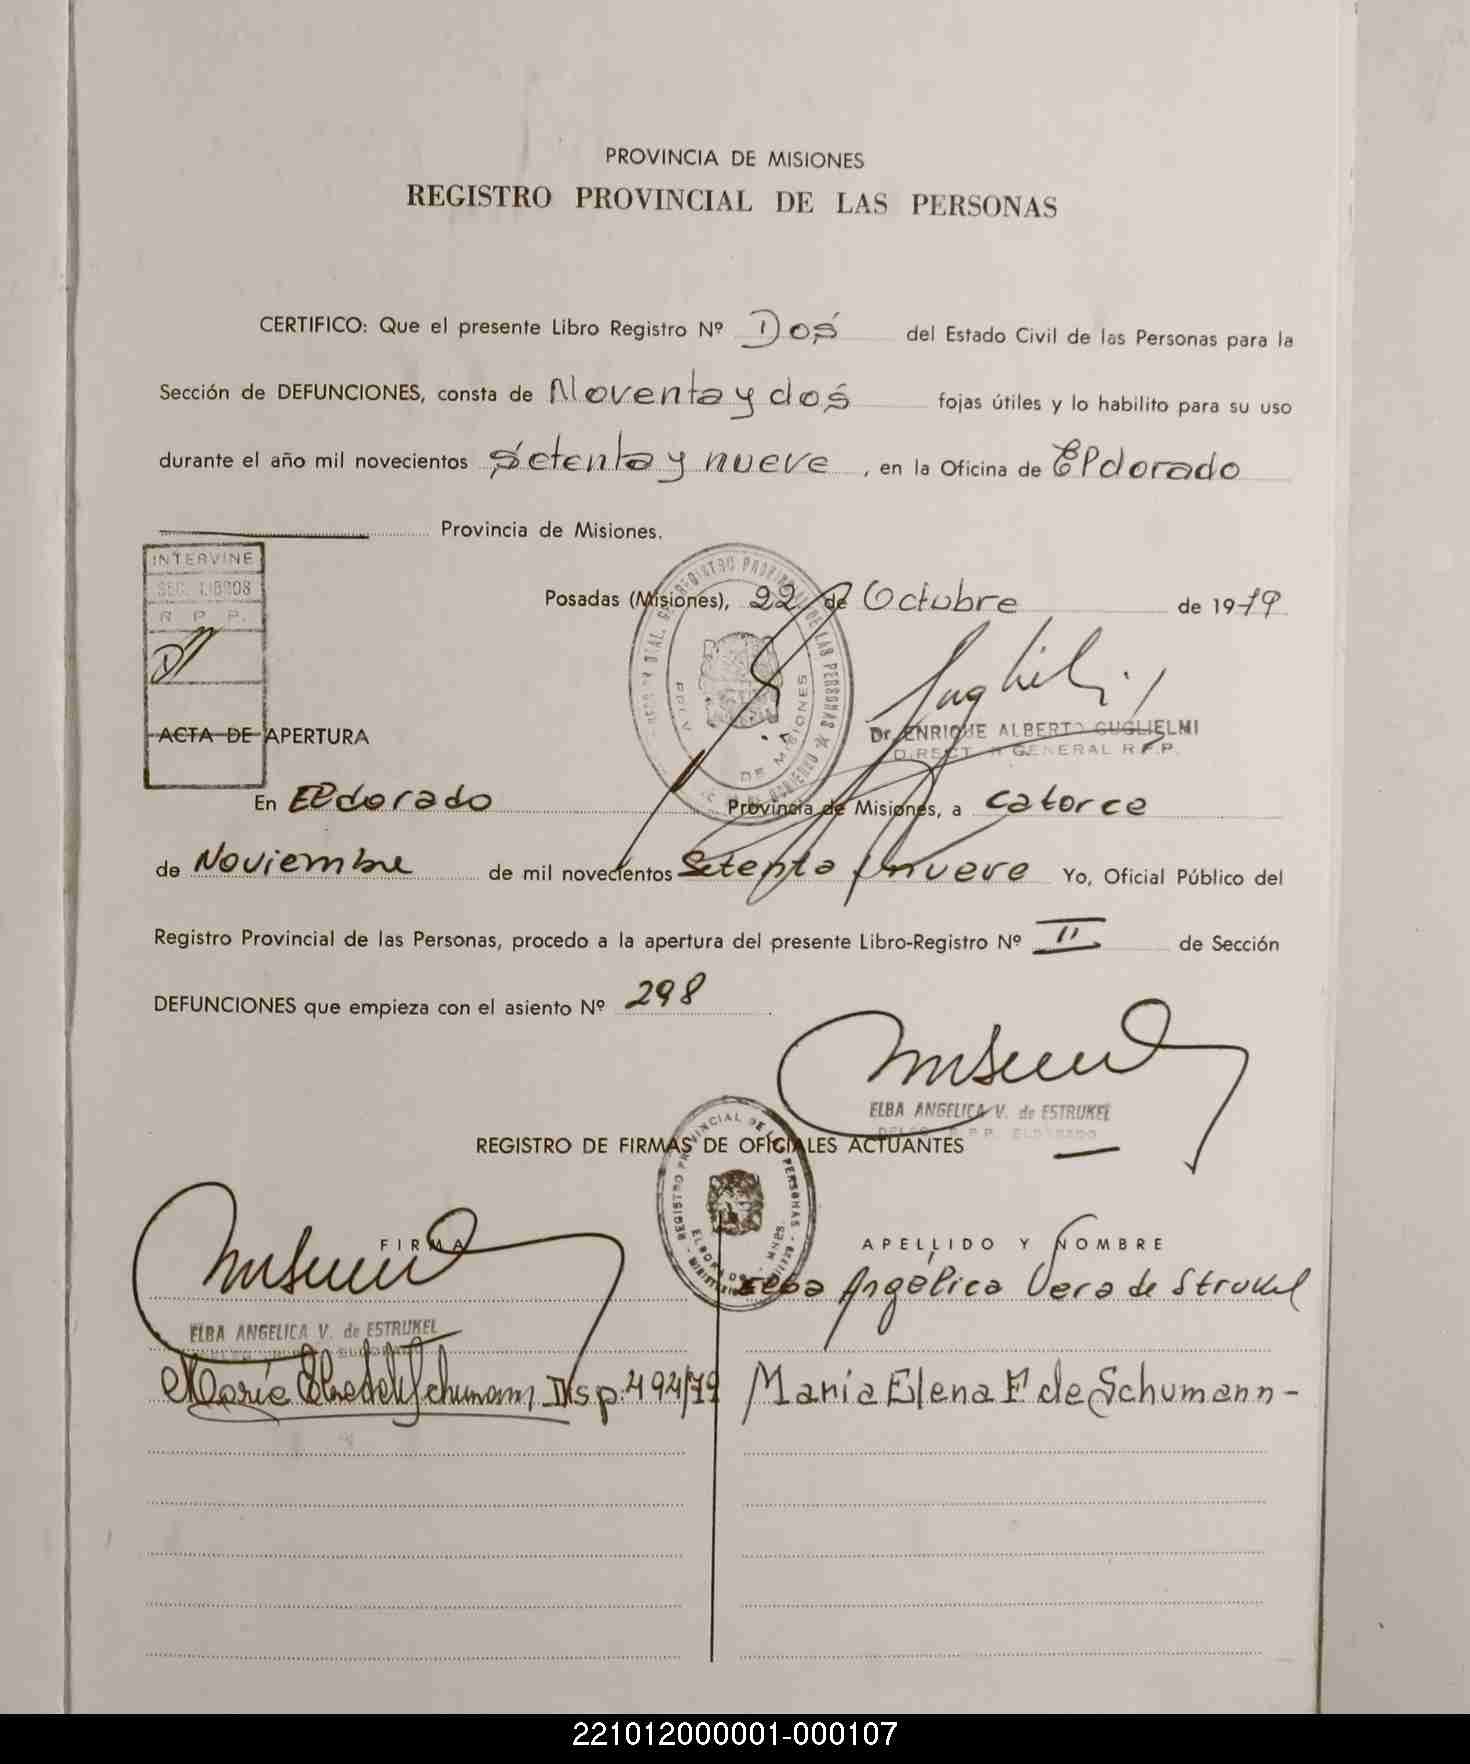 PROVINCIA DE MISIONES
REGISTRO PROVINCIAL DE LAS PERSONAS
CERTIFICO: Que el presente Libro Registro Nº Dos del Estado Civil de las Personas para la
Sección de DEFUNCIONES, consta de Noventa y dos fojas útiles y lo habilito para su uso
durante el año mil novecientos setenta y nueve, en la Oficina de Eldorado
Provincia de Misiones.
INTERVINE
SEC. LIBROS
R P P.
Posadas (Misiones), 22 de Octubre de 1979
Dr. ENRIQUE ALBERTO GUGLIELMI
DIRECTOR GENERAL R.P.P.
ACTA DE APERTURA
En Eldorado Provincia de Misiones, a catorce
de Noviembre de mil novecientos Setenta y nueve Yo, Oficial Público del
Registro Provincial de las Personas, procedo a la apertura del presente Libro-Registro Nº II de Sección
DEFUNCIONES que empieza con el asiento Nº 298
ELBA ANGELICA V. de ESTRUKEL
R.P.P. ELDORADO
REGISTRO DE FIRMAS DE OFICIALES ACTUANTES
REGISTRO PROVINCIAL DE LAS PERSONAS
FIRMA
APELLIDO Y NOMBRE
Elba Angélica Vera de Strukel
ELBA ANGELICA V. de ESTRUKEL
Disp. 494/79
Maria Elena F de Schumann-
221012000001-000107